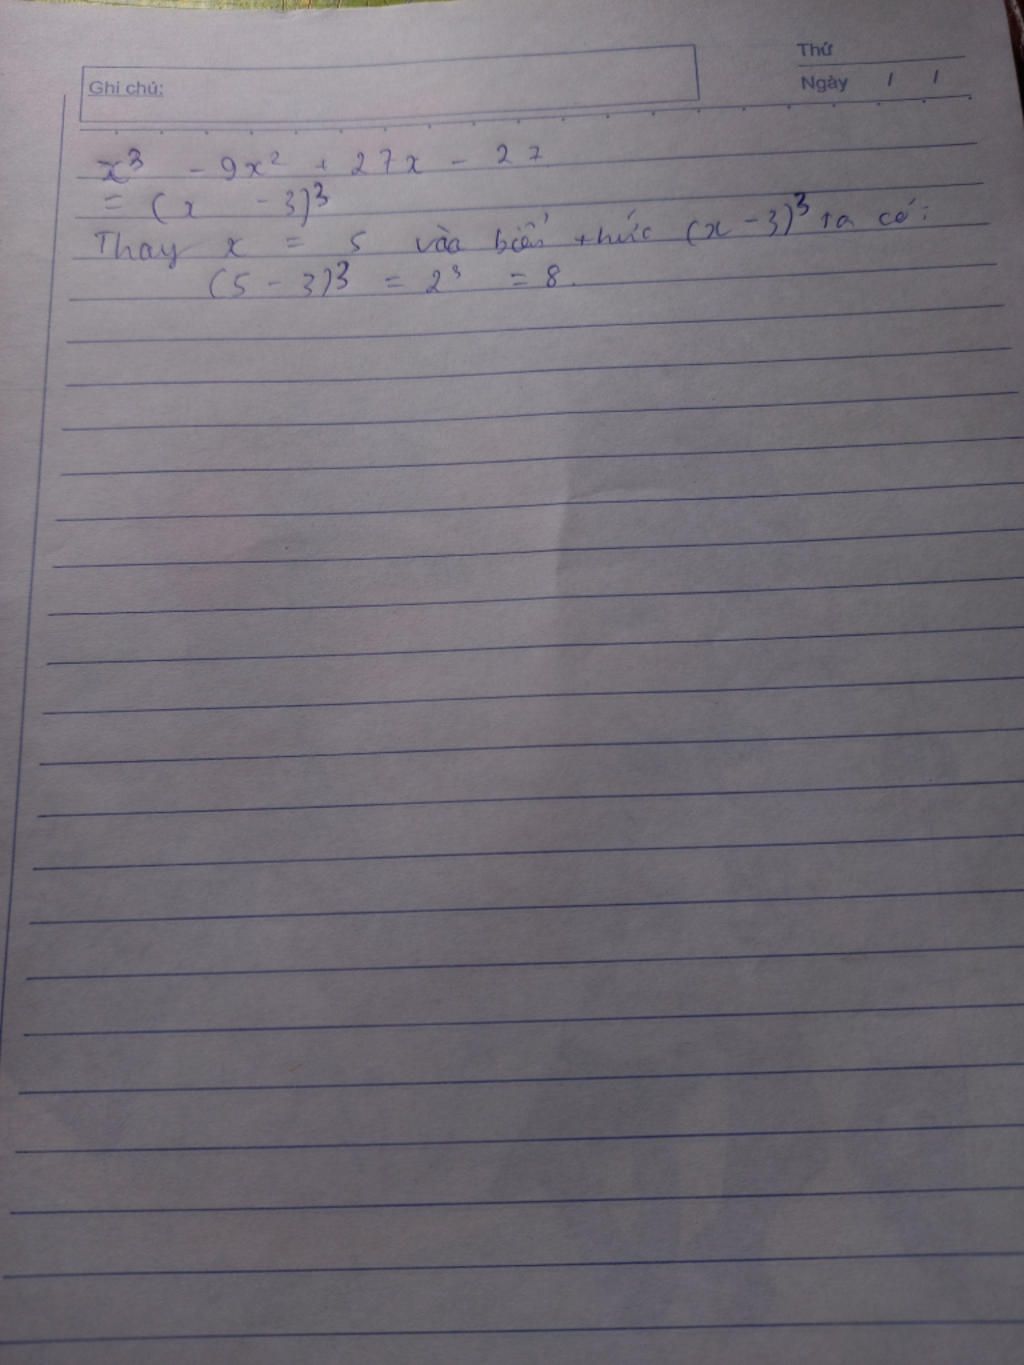 Thứ
Ghi chú:
Ngày / /
x³ - 9x² + 27x - 27
= (x - 3)³
Thay x = 5 vào biểu thức (x - 3)³ ta có:
(5 - 3)³ = 2³ = 8.